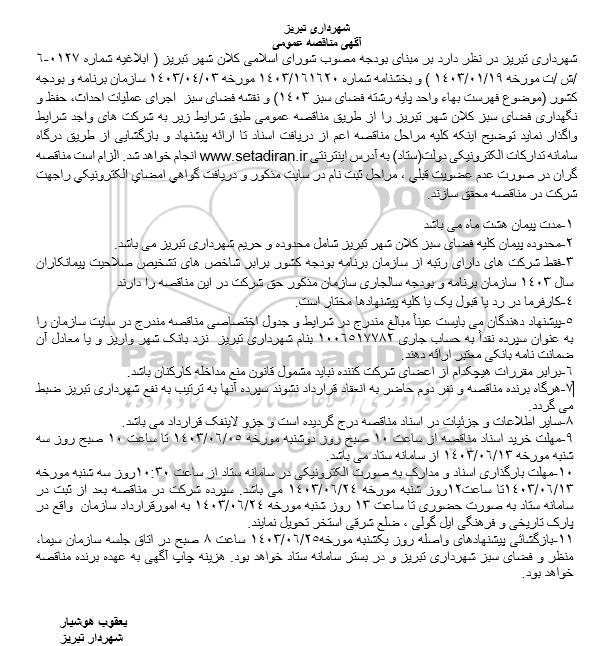 شهرداری تبریز
آگهی مناقصه عمومی
شهرداری تبریز در نظر دارد بر مبنای بودجه مصوب شورای اسلامی کلان شهر تبریز ( ابلاغیه شماره ۰۱۲۷-۶
/ش /ت مورخه ۱۴۰۳/۰۱/۱۹ ) و بخشنامه شماره ۱۴۰۳/۱۶۱۶۲۰ مورخه ۱۴۰۳/۰۴/۰۳ سازمان برنامه و بودجه
کشور (موضوع فهرست بهاء واحد پایه رشته فضای سبز ۱۴۰۳) و نقشه فضای سبز اجرای عملیات احداث، حفظ و
نگهداری فضای سبز کلان شهر تبریز را از طریق مناقصه عمومی طبق شرایط زیر به شرکت های واجد شرایط
واگذار نماید توضیح اینکه کلیه مراحل مناقصه اعم از دریافت اسناد تا ارائه پیشنهاد و بازگشایی از طریق درگاه
سامانه تدارکات الکترونیکی دولت(ستاد) به آدرس اینترنتی www.setadiran.ir انجام خواهد شد. الزام است مناقصه
گران در صورت عدم عضویت قبلی ، مراحل ثبت نام در سایت مذکور و دریافت گواهی امضای الکترونیکی راجهت
شرکت در مناقصه محقق سازند.
۱-مدت پیمان هشت ماه می باشد
۲-محدوده پیمان کلیه فضای سبز کلان شهر تبریز شامل محدوده و حریم شهرداری تبریز می باشد.
۳-فقط شرکت های دارای رتبه از سازمان برنامه بودجه کشور برابر شاخص های تشخیص صلاحیت پیمانکاران
سال ۱۴۰۳ سازمان برنامه و بودجه سالجاری سازمان مذکور حق شرکت در این مناقصه را دارند
۴-کارفرما در رد یا قبول یک یا کلیه پیشنهادها مختار است.
۵-پیشنهاد دهندگان می بایست عیناً مبالغ مندرج در شرایط و جدول اختصاصی مناقصه مندرج در سایت سازمان را
به عنوان سپرده نقداً به حساب جاری ۱۰۰۶۵۱۷۷۸۲ بنام شهرداری تبریز نزد بانک شهر واریز و یا معادل آن
ضمانت نامه بانکی معتبر ارائه دهند.
۶-برابر مقررات هیچکدام از اعضای شرکت کننده نباید مشمول قانون منع مداخله کارکنان باشد.
۷-هرگاه برنده مناقصه و نفر دوم حاضر به انعقاد قرارداد نشوند سپرده آنها به ترتیب به نفع شهرداری تبریز ضبط
می گردد.
۸-سایر اطلاعات و جزئیات در اسناد مناقصه درج گردیده است و جزو لاینفک قرارداد می باشد.
۹-مهلت خرید اسناد مناقصه از ساعت ۱۰ صبح روز دوشنبه مورخه ۱۴۰۳/۰۶/۰۵ تا ساعت ۱۰ صبح روز سه
شنبه مورخه ۱۴۰۳/۰۶/۱۳ از سامانه ستاد می باشد.
۱۰-مهلت بارگذاری اسناد و مدارک به صورت الکترونیکی در سامانه ستاد از ساعت ۱۰:۳۰روز سه شنبه مورخه
۱۴۰۳/۰۶/۱۳تا ساعت۱۲روز شنبه مورخه ۱۴۰۳/۰۶/۲۴ می باشد. سپرده شرکت در مناقصه بعد از ثبت در
سامانه ستاد به صورت حضوری تا ساعت ۱۳ روز شنبه مورخه ۱۴۰۳/۰۶/۲۴ به امورقرارداد سازمان واقع در
پارک تاریخی و فرهنگی ایل گولی ، ضلع شرقی استخر تحویل نمایند.
۱۱-بازگشائی پیشنهادهای واصله روز یکشنبه مورخه۱۴۰۳/۰۶/۲۵ ساعت ۸ صبح در اتاق جلسه سازمان سیما،
منظر و فضای سبز شهرداری تبریز و در بستر سامانه ستاد خواهد بود. هزینه چاپ آگهی به عهده برنده مناقصه
خواهد بود.
یعقوب هوشیار
شهردار تبریز